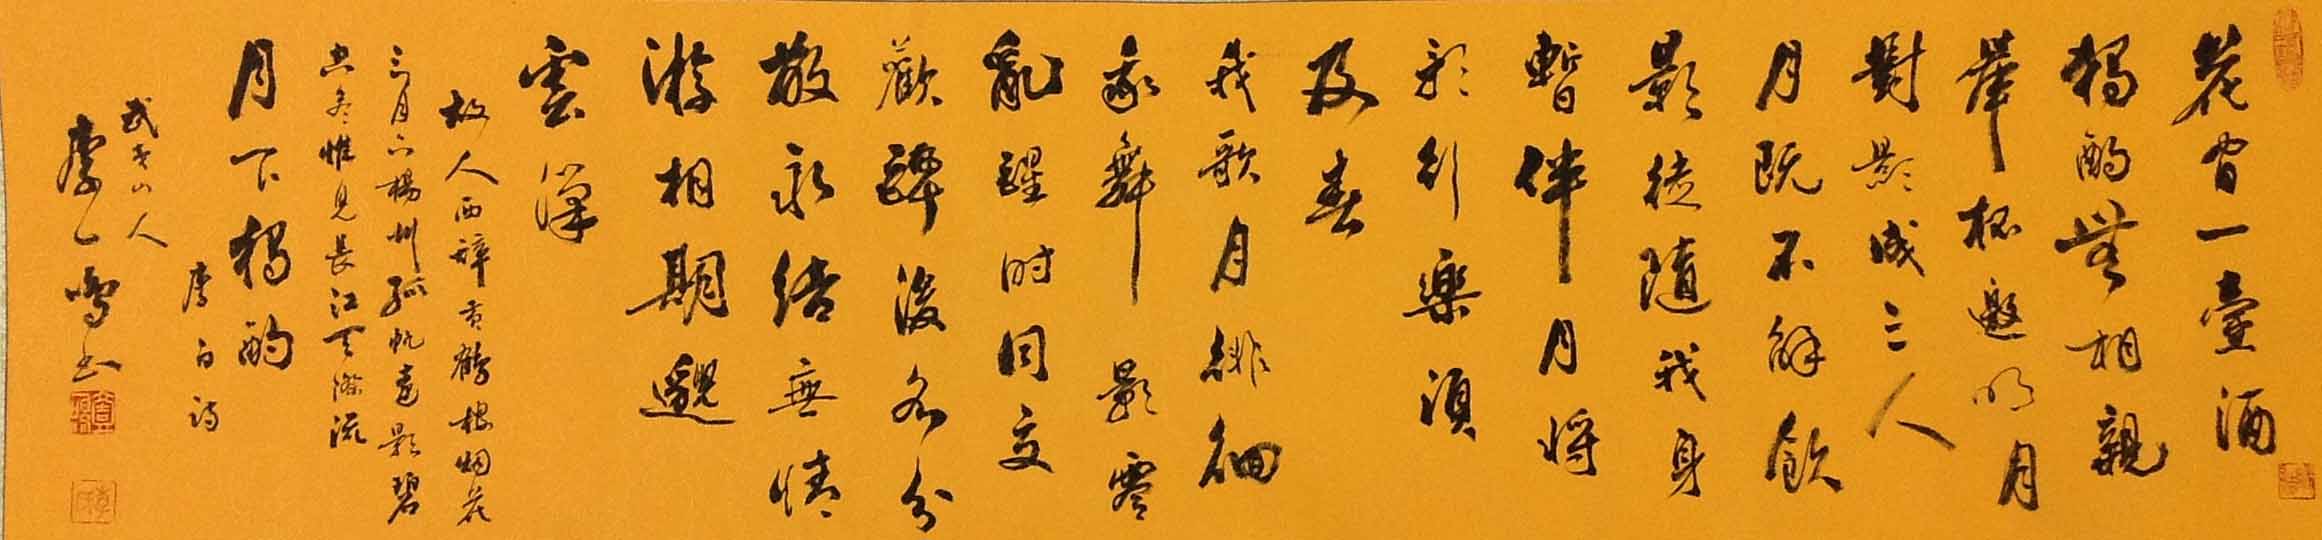 花間一壺酒
獨酌無相親
舉杯邀明月
對影成三人
月既不解飲
影徒隨我身
暫伴月將
影行樂須
及春
我歌月徘徊
我舞影零
亂醒時同交
歡醉後各分
散永結無情
游相期邈
雲漢
故人西辭黃鶴楼烟花
三月下揚州孤帆遠影碧
空尽惟見長江天際流
月下獨酌
李白詩
武夷山人
李一鳴书